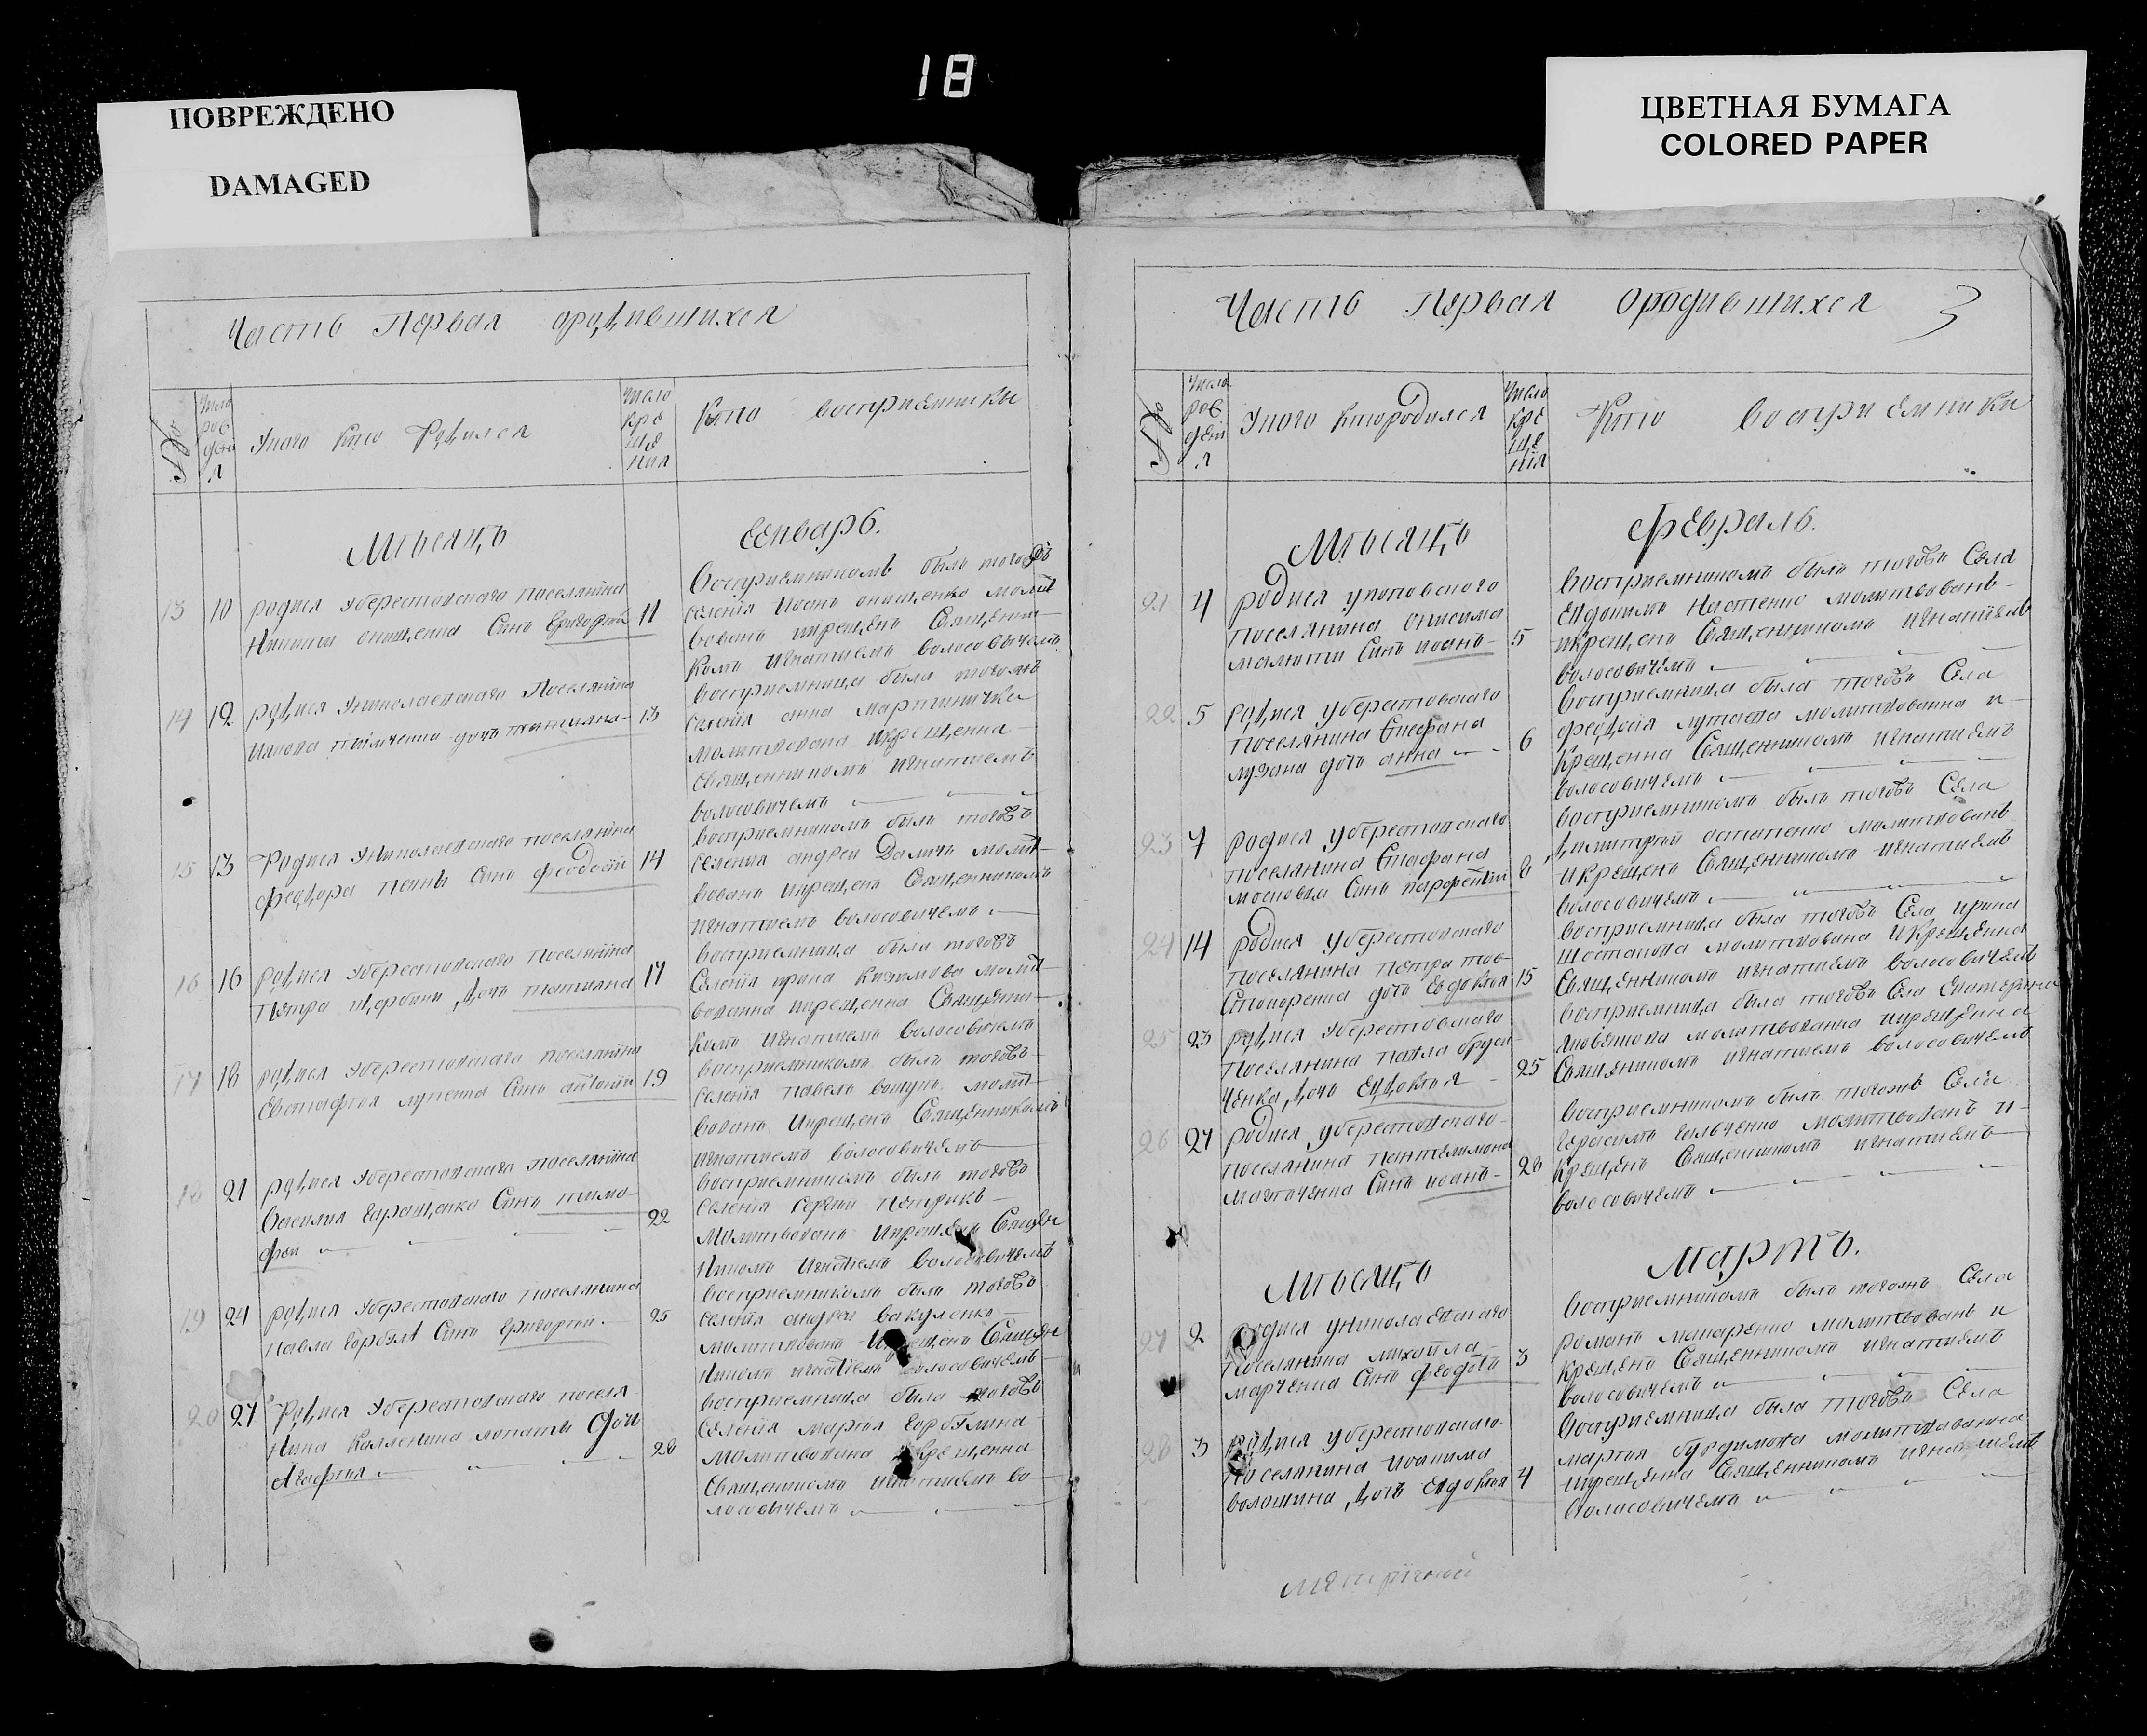 18
ПОВРЕЖДЕНО
DAMAGED
ЦВЕТНАЯ БУМАГА
COLORED PAPER
Часть Первая ородившихся
№
Число рождения
Укого Кто Родился
Число Крещения
Кто восприемники
Мѣсяцъ Генварь.
13 10 родися Уберестовского поселянина
Никиты онищенка Сынъ Григорій 11
Восприемникомъ былъ тогожъ
селенія Иоанъ онищенко молит
вованъ икрещенъ Священни
комъ Игнатиемъ волосовичемъ
14 12 родися Униколаевского Поселянина
дочь татиана 13
восприемница была тогожъ
селенія анна
молитвована икрещенна
священникомъ Игнатиемъ
волосовичемъ
15 13 Родися Униколаевского поселянина
феодора Сынъ феодосій 14
восприемникомъ былъ тогожъ
селенія андрей молит
вованъ икрещенъ Священникомъ
игнатиемъ волосовичемъ
16 16 родися Уберестовского поселянина
Петра щербини дочь татиана 17
восприемница была тогожъ
Селенія ирина молит
вованна икрещенна Священни
комъ Игнатиемъ волосовичемъ
17 18 родися Уберестовского поселянина
Евстафия луценка Сынъ антоній 19
восприемникомъ былъ тогожъ
селенія павелъ молит
вованъ Икрещенъ Священникомъ
игнатиемъ волосовичемъ
18 21 родися Уберестовского поселянина
Василия Геращенка Сынъ тимо
фей 22
восприемникомъ былъ тогожъ
селенія Сергій Петрикъ
Молитвованъ Икрещенъ Священ
никомъ Игнатіемъ Волосовичемъ
19 24 родися Уберестовского поселянина
павла Сынъ Григорій 25
восприемникомъ былъ тогожъ
селенія андрей вакуленко
молитвованъ Икрещенъ Священ
никомъ игнатіемъ волосовичемъ
20 27 Родися Уберестовского поселя
нина Каленика лопаты дочь
Агафия 28
восприемница была тогожъ
Селенія мария
молитвована икрещенна
Священикомъ игнатиемъ во
лосовичемъ
Часть Первая ородившихся 3
№
Число рождения
Укого Кто родился
Число Крещенія
Кто восприемники
Мѣсяцъ Февраль.
21 4 родися
поселянина онисима
Сынъ иоанъ 5
Восприемникомъ былъ тогожъ Села
Евдокимъ молитвованъ
икрещенъ Священникомъ игнатіемъ
волосовичемъ
22 5 родися уберестовского
поселянина Стефана
дочь анна 6
восприемница была тогожъ Села
феодосія молитвованна и
Крещенна Священникомъ игнатиемъ
волосовичемъ
23 7 родися уберестовского
поселянина Стефана
московца Сынъ парфентій 8
восприемникомъ былъ тогожъ Села
Димитрій остапенко молитвованъ
икрещенъ Священникомъ игнатиемъ
волосовичемъ
24 14 родися уберестовского
поселянина петра тов
стопорenка дочь Евдокия 15
восприемница была тогожъ Села ирина
молитвована икрещенна
Священникомъ игнатиемъ волосовичемъ
25 23 родися Уберестовского
поселянина павла
ченка, дочь Евдокия 25
восприемница была тогожъ Села Екатерина
молитвованна икрещенна
Священикомъ игнатиемъ волосовичемъ
26 27 родися уберестовского
поселянина пантелимона
Сынъ иоанъ 28
восприемникомъ былъ тогожъ Села
герасимъ молитвованъ и
крещенъ Священникомъ игнатиемъ
волосовичемъ
Мѣсяцъ Мартъ.
27 2 родися униколаевского
поселянина михайла
марченка Сынъ феодотъ 3
восприемникомъ былъ тогожъ Села
романъ макаренко молитвованъ и
крещенъ Священникомъ игнатиемъ
волосовичемъ
28 3 родися уберестовского
поселянина иоакима
волошина, дочь Евдокия 4
восприемница была тогожъ Села
мария молитвованна
икрещенна Священникомъ игнатиемъ
Воласовичемъ
Метрической